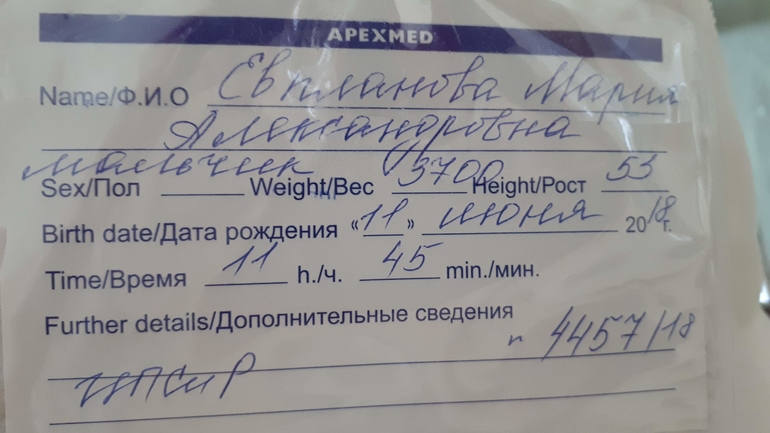 APEXMED
Name/Ф.И.О Евпланова Мария
Александровна
мальчик
Sex/Пол Weight/Вес 3700 Height/Рост 53
Birth date/Дата рождения «11» июня 2018г.
Time/Время 11 h./ч. 45 min./мин.
Further details/Дополнительные сведения
п 4457/18
ЦПСиР